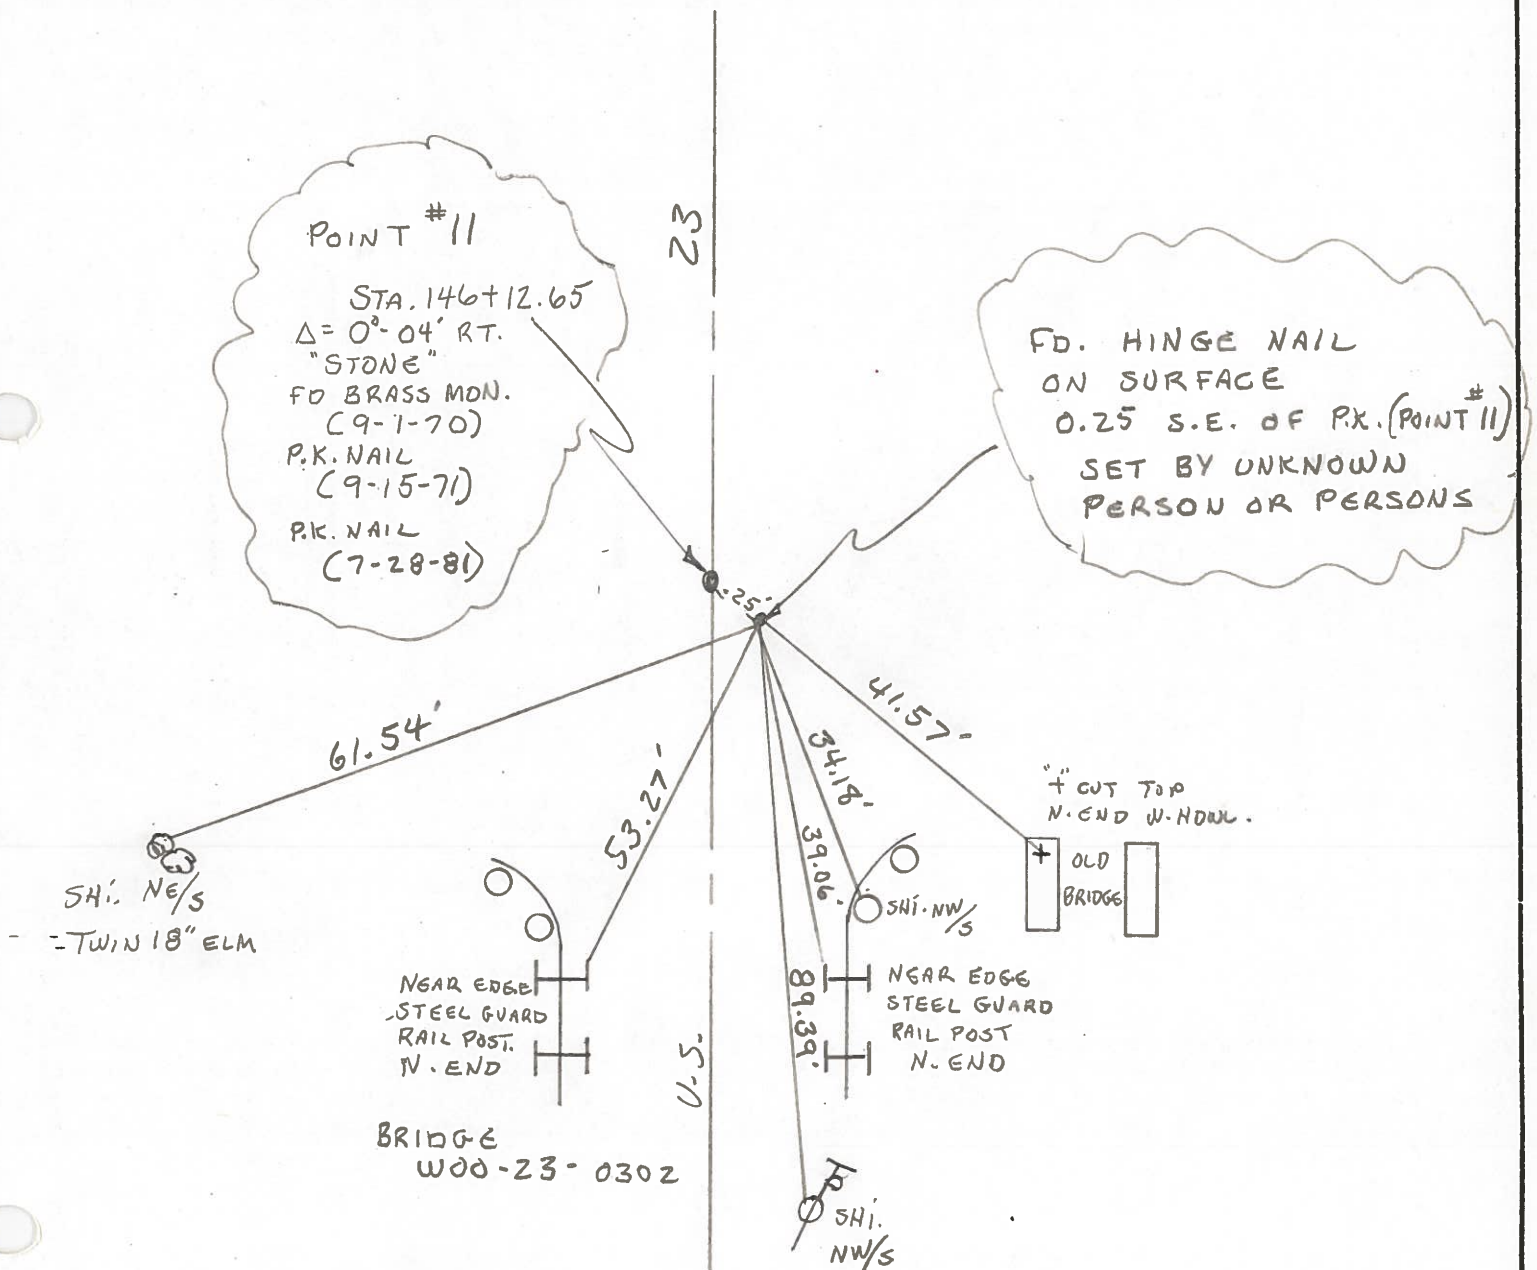 POINT #11
STA. 146+12.65
Δ= 0°-04' RT.
"STONE"
FD BRASS MON.
(9-1-70)
P.K. NAIL
(9-15-71)
P.K. NAIL
(7-28-81)
23
FD. HINGE NAIL
ON SURFACE
0.25 S.E. OF P.K. (POINT #11)
SET BY UNKNOWN
PERSON OR PERSONS
.25'
61.54'
53.27'
34.18'
39.06'
41.57'
89.39'
"+" CUT TOP
N. END W. HDWL.
OLD
BRIDGE
SHi. NE/S
TWIN 18" ELM
SHi. NW/S
NEAR EDGE
STEEL GUARD
RAIL POST.
N. END
NEAR EDGE
STEEL GUARD
RAIL POST
N. END
U.S.
BRIDGE
WOO-23-0302
SHi.
NW/S